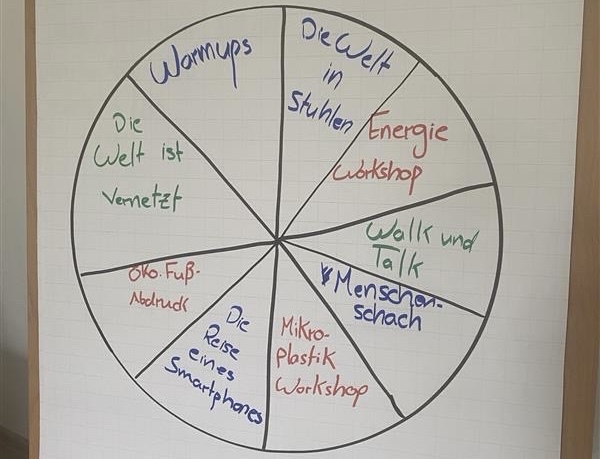 Warmups
Die Welt
in
Stühlen
Energie
Workshop
Walk und
Talk
Menschen-
schach
Mikro-
plastik
Workshop
Die
Reise
eines
Smartphones
Öko. Fuß-
Abdruck
Die
Welt ist
Vernetzt